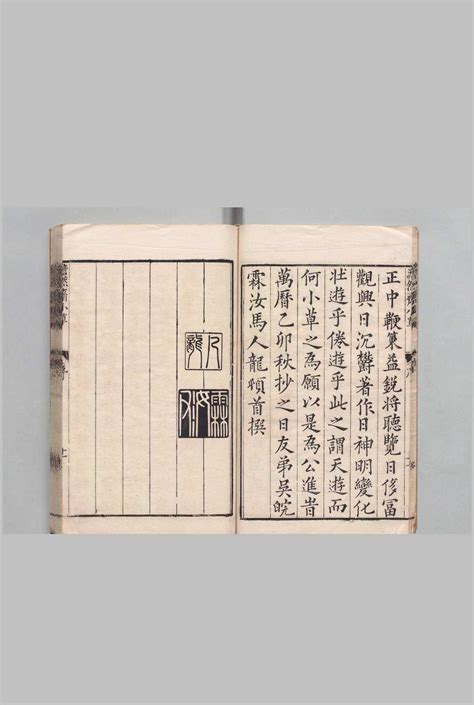 正中鞭策益銳將聽覽日修冨
觀興日沉欝著作日神明變化
壯遊乎倦遊乎此之謂天遊而
何小草之為願以是為公進旹
萬曆乙卯秋抄之日友弟吳皖
霖汝馬人龍頓首撰
人龍
霖汝